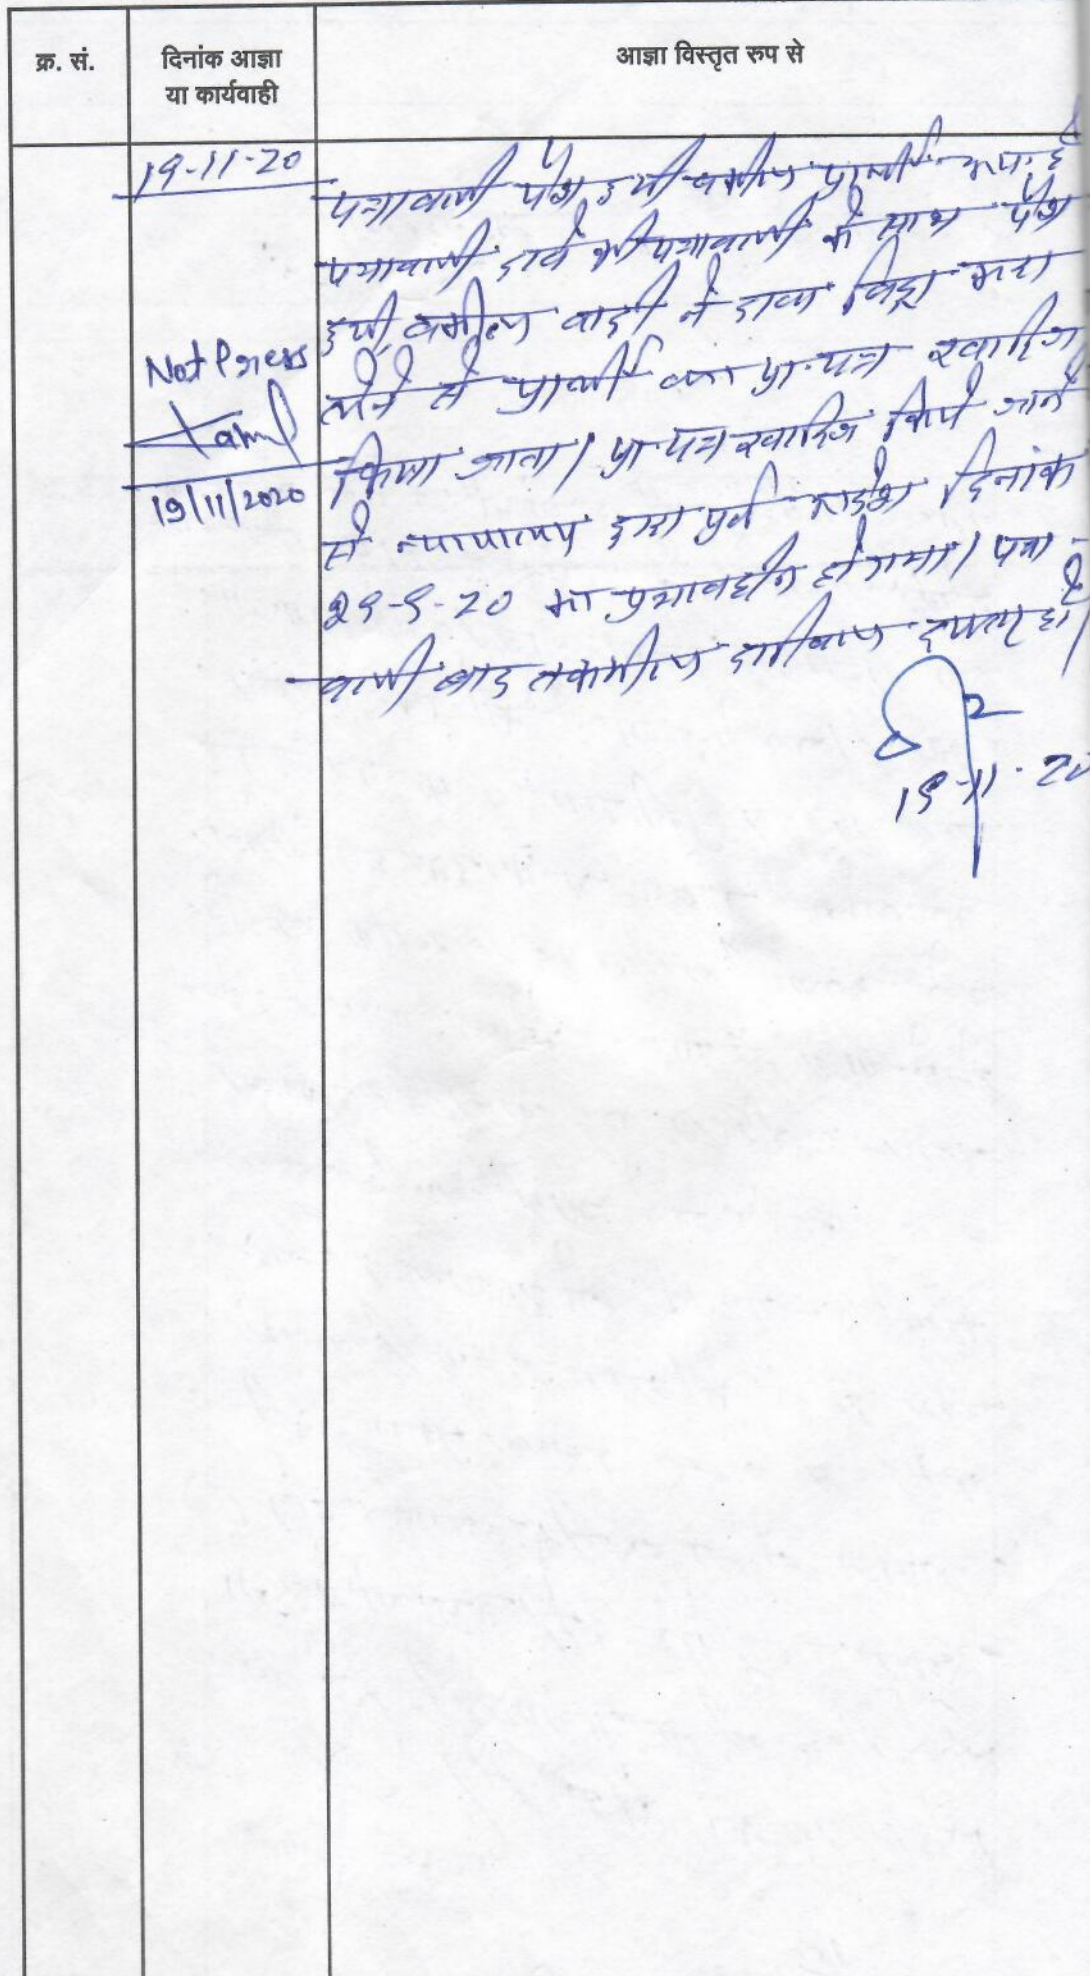 क्र. सं.
दिनांक आज्ञा
या कार्यवाही
आज्ञा विस्तृत रुप से
19-11-20
Not Press
19/11/2020
पत्रावली पेश हुयी वकील प्रार्थी उप. है
पत्रावली दावे की पत्रावली के साथ पेश
हुयी, वकील वादी ने दावा विड्रा करा
लेने से प्रार्थी का प्रा. पत्र खारिज
किया जाता। प्रा पत्र खारिज किये जाने
से न्यायालय द्वारा पूर्व आदेश दिनांक
29-9-20 का प्रभावहीन हो गया। पत्रा-
वली बाद तकमील दाखिल दफ्तर हो।
19-11-20